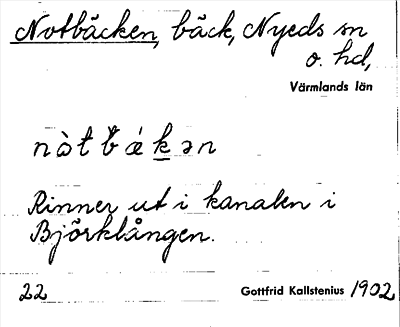 Notbäcken, bäck, Nyeds sn
o. hd,
Värmlands län
nὰt b ǽ k ə n
Rinner ut i kanalen i
Björklången.
22 Gottfrid Kallstenius 1902